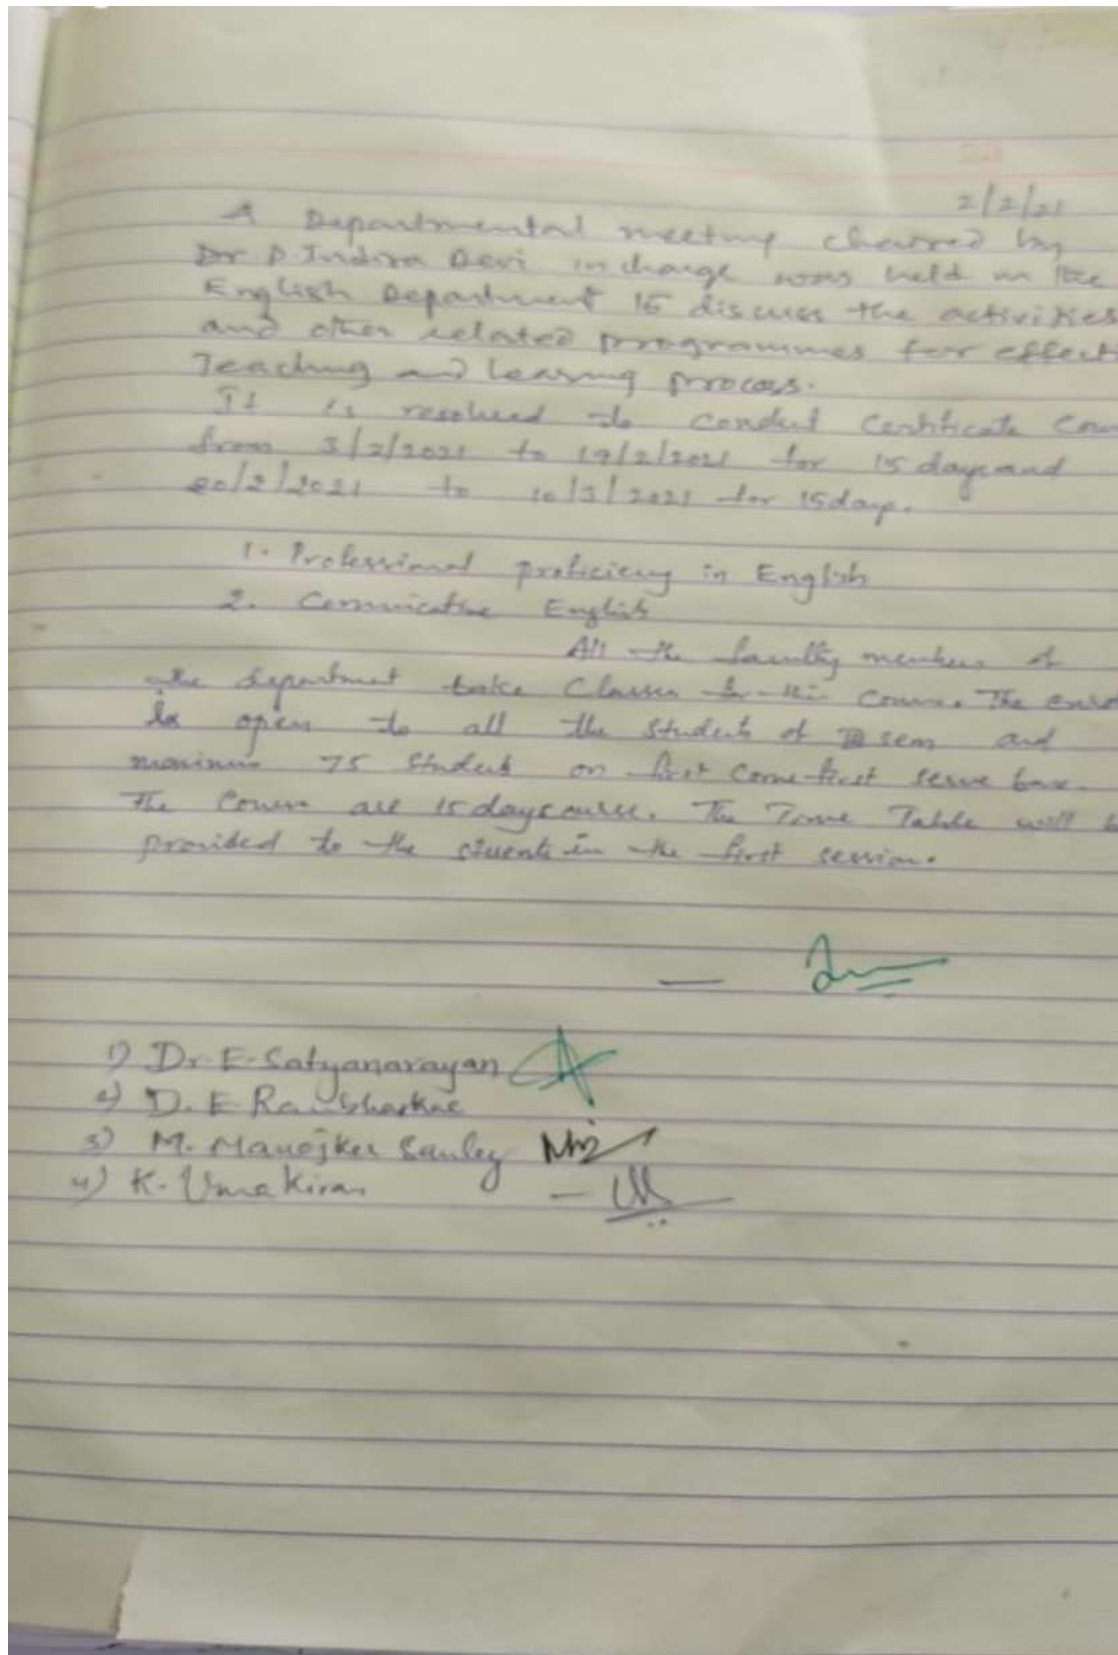 2/2/21
A Departmental meeting chaired by
Dr P. Indira Devi incharge was held in the
English Department to discuss the activities
and other related programmes for effect
Teaching and learning process.
It is resolved to conduct Certificate Cou
from 3/2/2021 to 19/2/2021 for 15 days and
20/2/2021 to 10/3/2021 for 15 days.
1. Professional proficiency in English
2. Communicative English
All the faculty members of
the department take Classes for this course. The enrol
is open to all the students of sem and
maximum 75 Students on first come first serve base.
The Course are 15 days course. The Time Table will b
provided to the stuents in the first session.
1) Dr. E. Satyanarayan
2) D. E.
3) M. Manojker
4) K. Uma Kiran